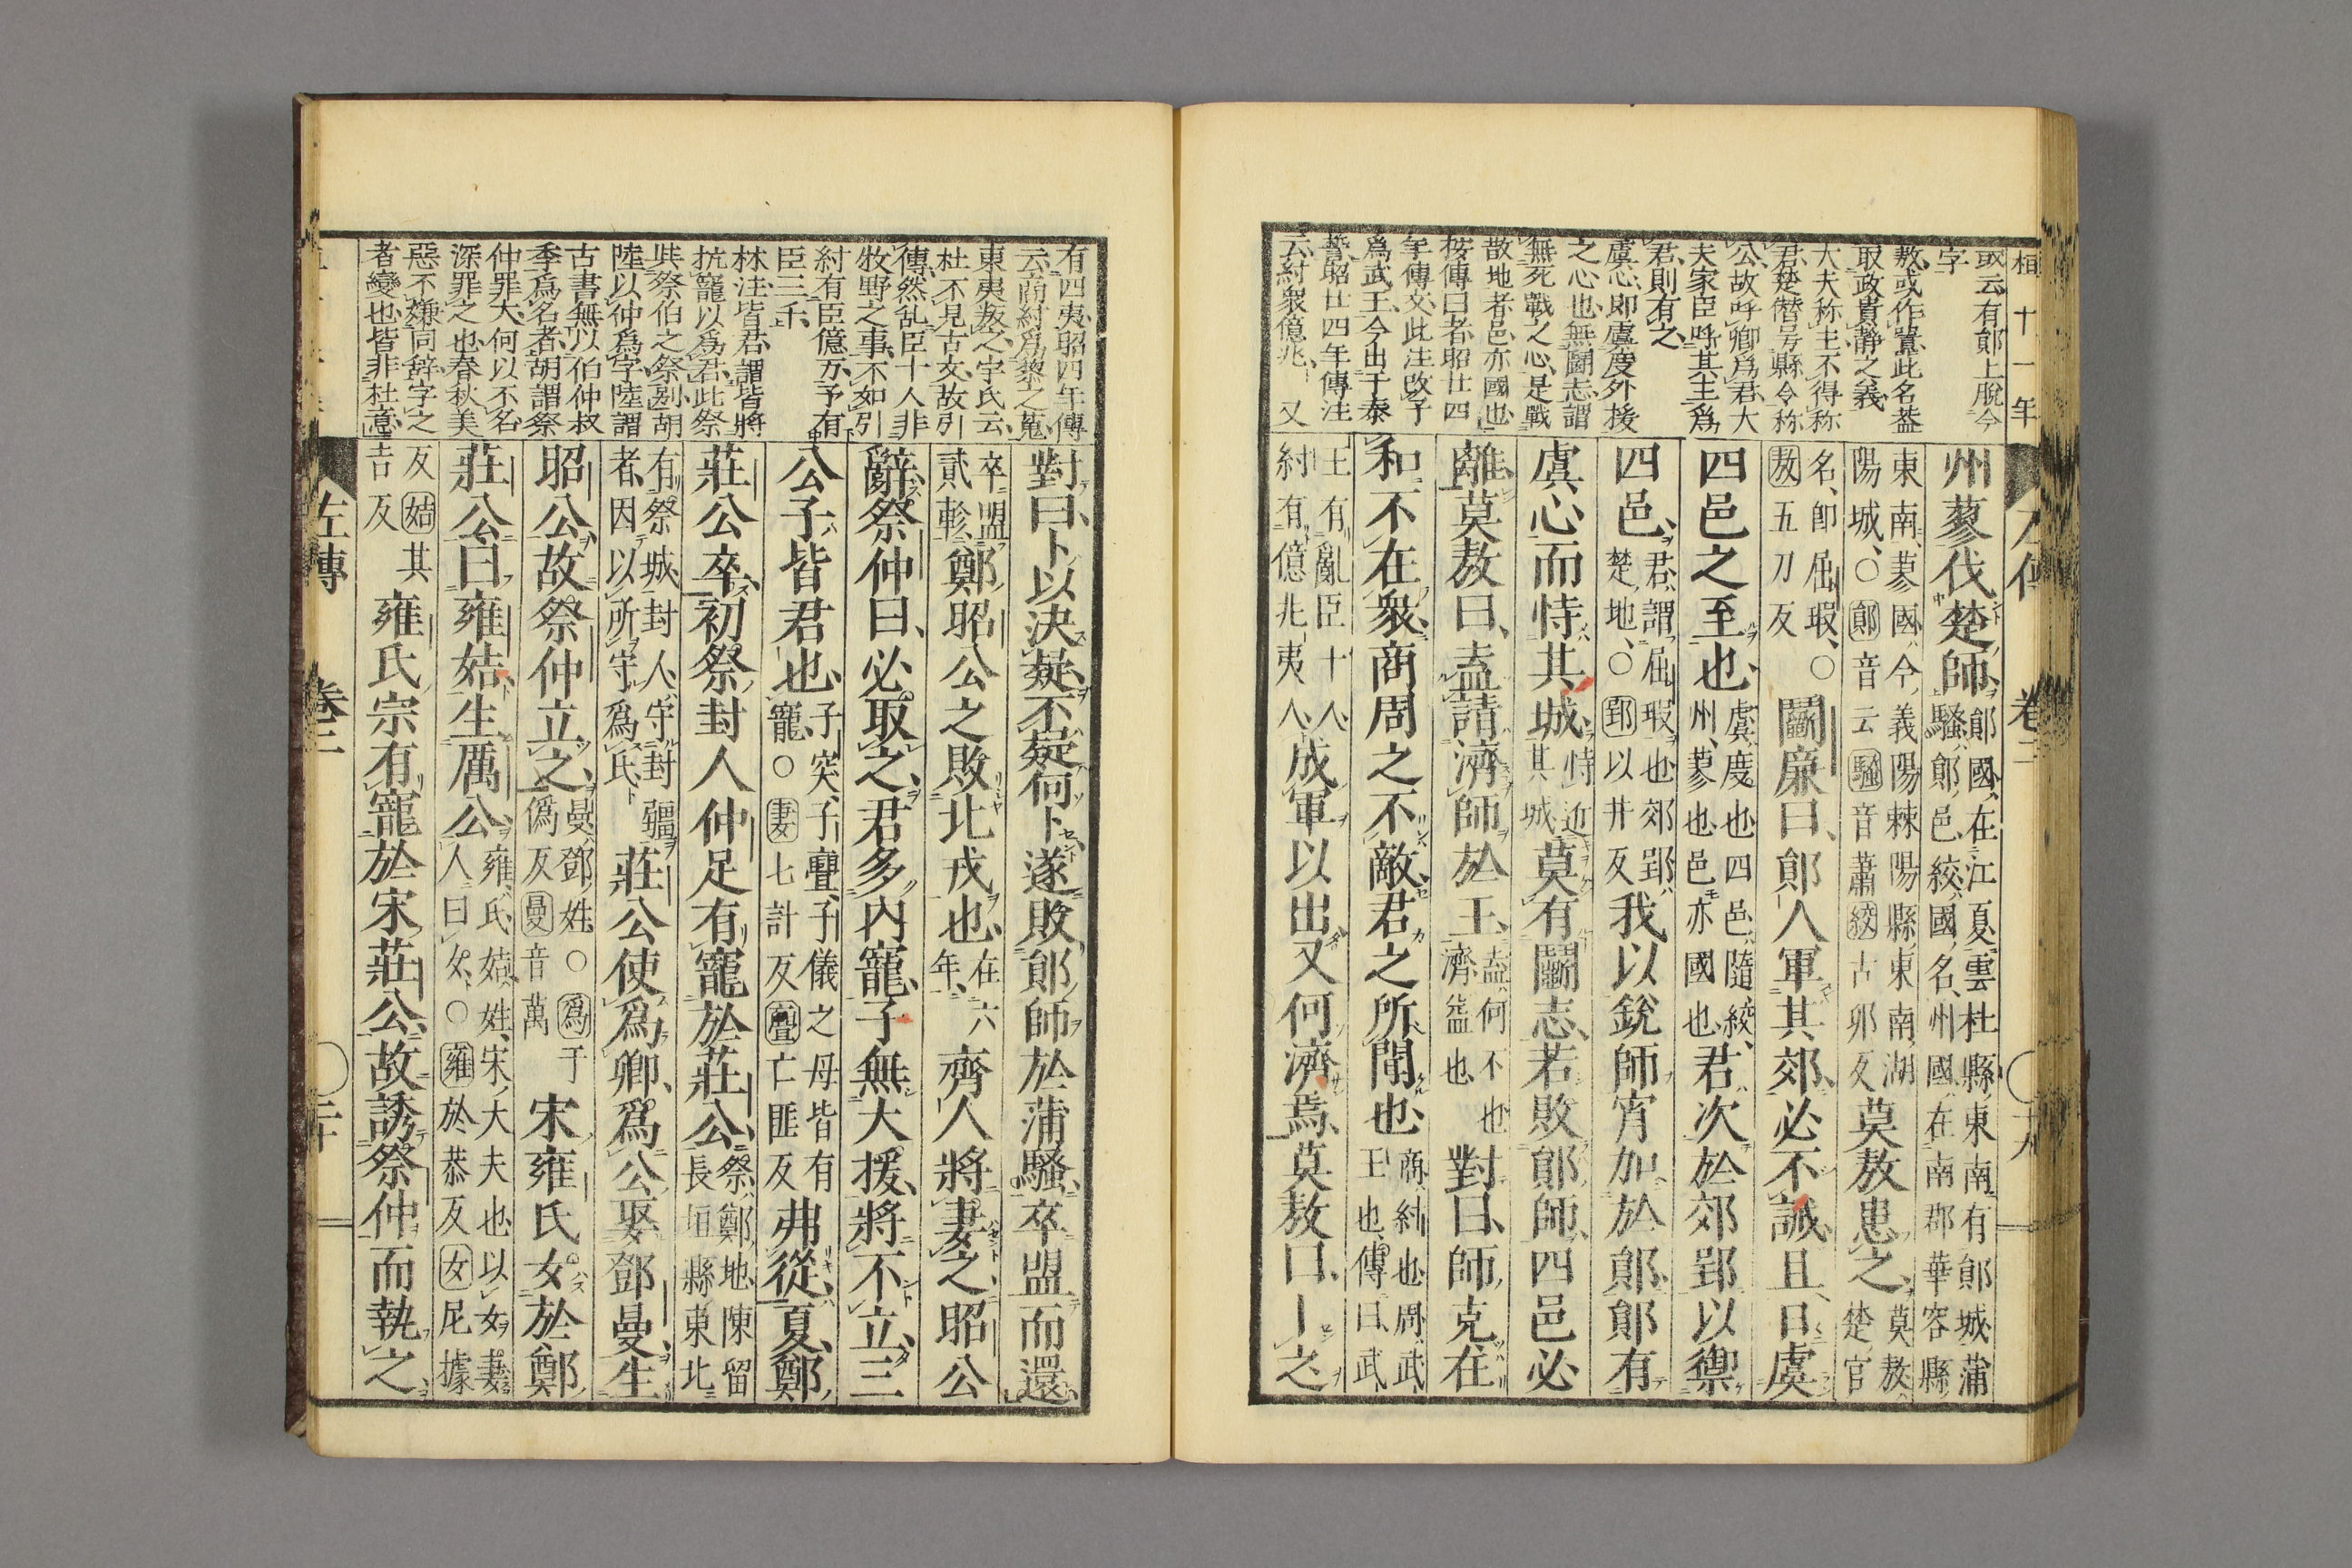 桓十一年
左傳 卷二 十九
㝡云有鄖上脫今
字
敖或作驁此名蓋
取政貴靜之義
大夫称主不得称
君楚僣号縣令称
公故呼卿爲君大
夫家臣呼其主爲
君則有之
虞心即虞度外援
之心也無鬪志謂
無死戰之心是戰
散地者邑亦國也
按傳曰者昭廿四
年傳文此注改予
爲武王今出于泰
誓昭廿四年傳注
云紂衆億兆 又
州蓼伐楚師鄖國在江夏雲杜縣東南有鄖城蒲騷鄖邑絞國名州國在南郡華容縣
東南蓼國今義陽棘陽縣東南湖陽城○鄖音云騷音蕭絞古卯反莫敖患之莫敖楚官
名卽屈瑕○敖五刀反鬭廉曰鄖人軍其郊必不誡且日虞
四邑之至也虞度也四邑隨絞州蓼也邑亦國也君次於郊郢以禦
四邑君謂屈瑕也郊郢楚地○郢以井反我以銳師宵加於鄖鄖有
虞心而恃其城恃近其城莫有鬭志若敗鄖師四邑必
離莫敖曰盍請濟師於王盍何不也濟益也對曰師克在
和不在衆商周之不敵君之所聞也商紂也周武王也傳曰武
王有亂臣十人紂有億兆夷人成軍以出又何濟焉莫敖曰卜之
有四夷昭四年傳
云商紂爲黎之蒐
東夷叛之宇氏云
杜不見古文故引
傳然乱臣十人非
牧野之事不如引
紂有臣億万予有
臣三千
林注皆君謂皆將
抗寵以爲君此祭
與祭伯之祭別胡
陸以仲爲字陸謂
古書無以伯仲叔
季爲名者胡謂祭
仲罪大何以不名
深罪之也春秋美
惡不嫌同辭字之
者變也皆非杜意
對曰卜以決疑不疑何卜遂敗鄖師於蒲騷卒盟而還
卒盟貳軫鄭昭公之敗北戎也在六年齊人將妻之昭公
辭祭仲曰必取之君多內寵子無大援將不立三
公子皆君也子突子亹子儀之母皆有寵○妻七計反亹亡匪反弗從夏鄭
莊公卒初祭封人仲足有寵於莊公祭鄭地陳留長垣縣東北
有祭城封人守封疆者因以所守爲氏莊公使爲卿爲公娶鄧曼生
昭公故祭仲立之曼鄧姓○爲于僞反曼音萬宋雍氏女於鄭
莊公曰雍姞生厲公雍氏姞姓宋大夫也以女妻人曰女○雍於恭反女尼據
反姞其吉反雍氏宗有寵於宋莊公故誘祭仲而執之
左傳 卷二 二十